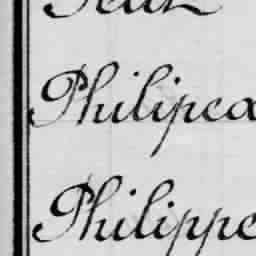 Philipea
Philippe